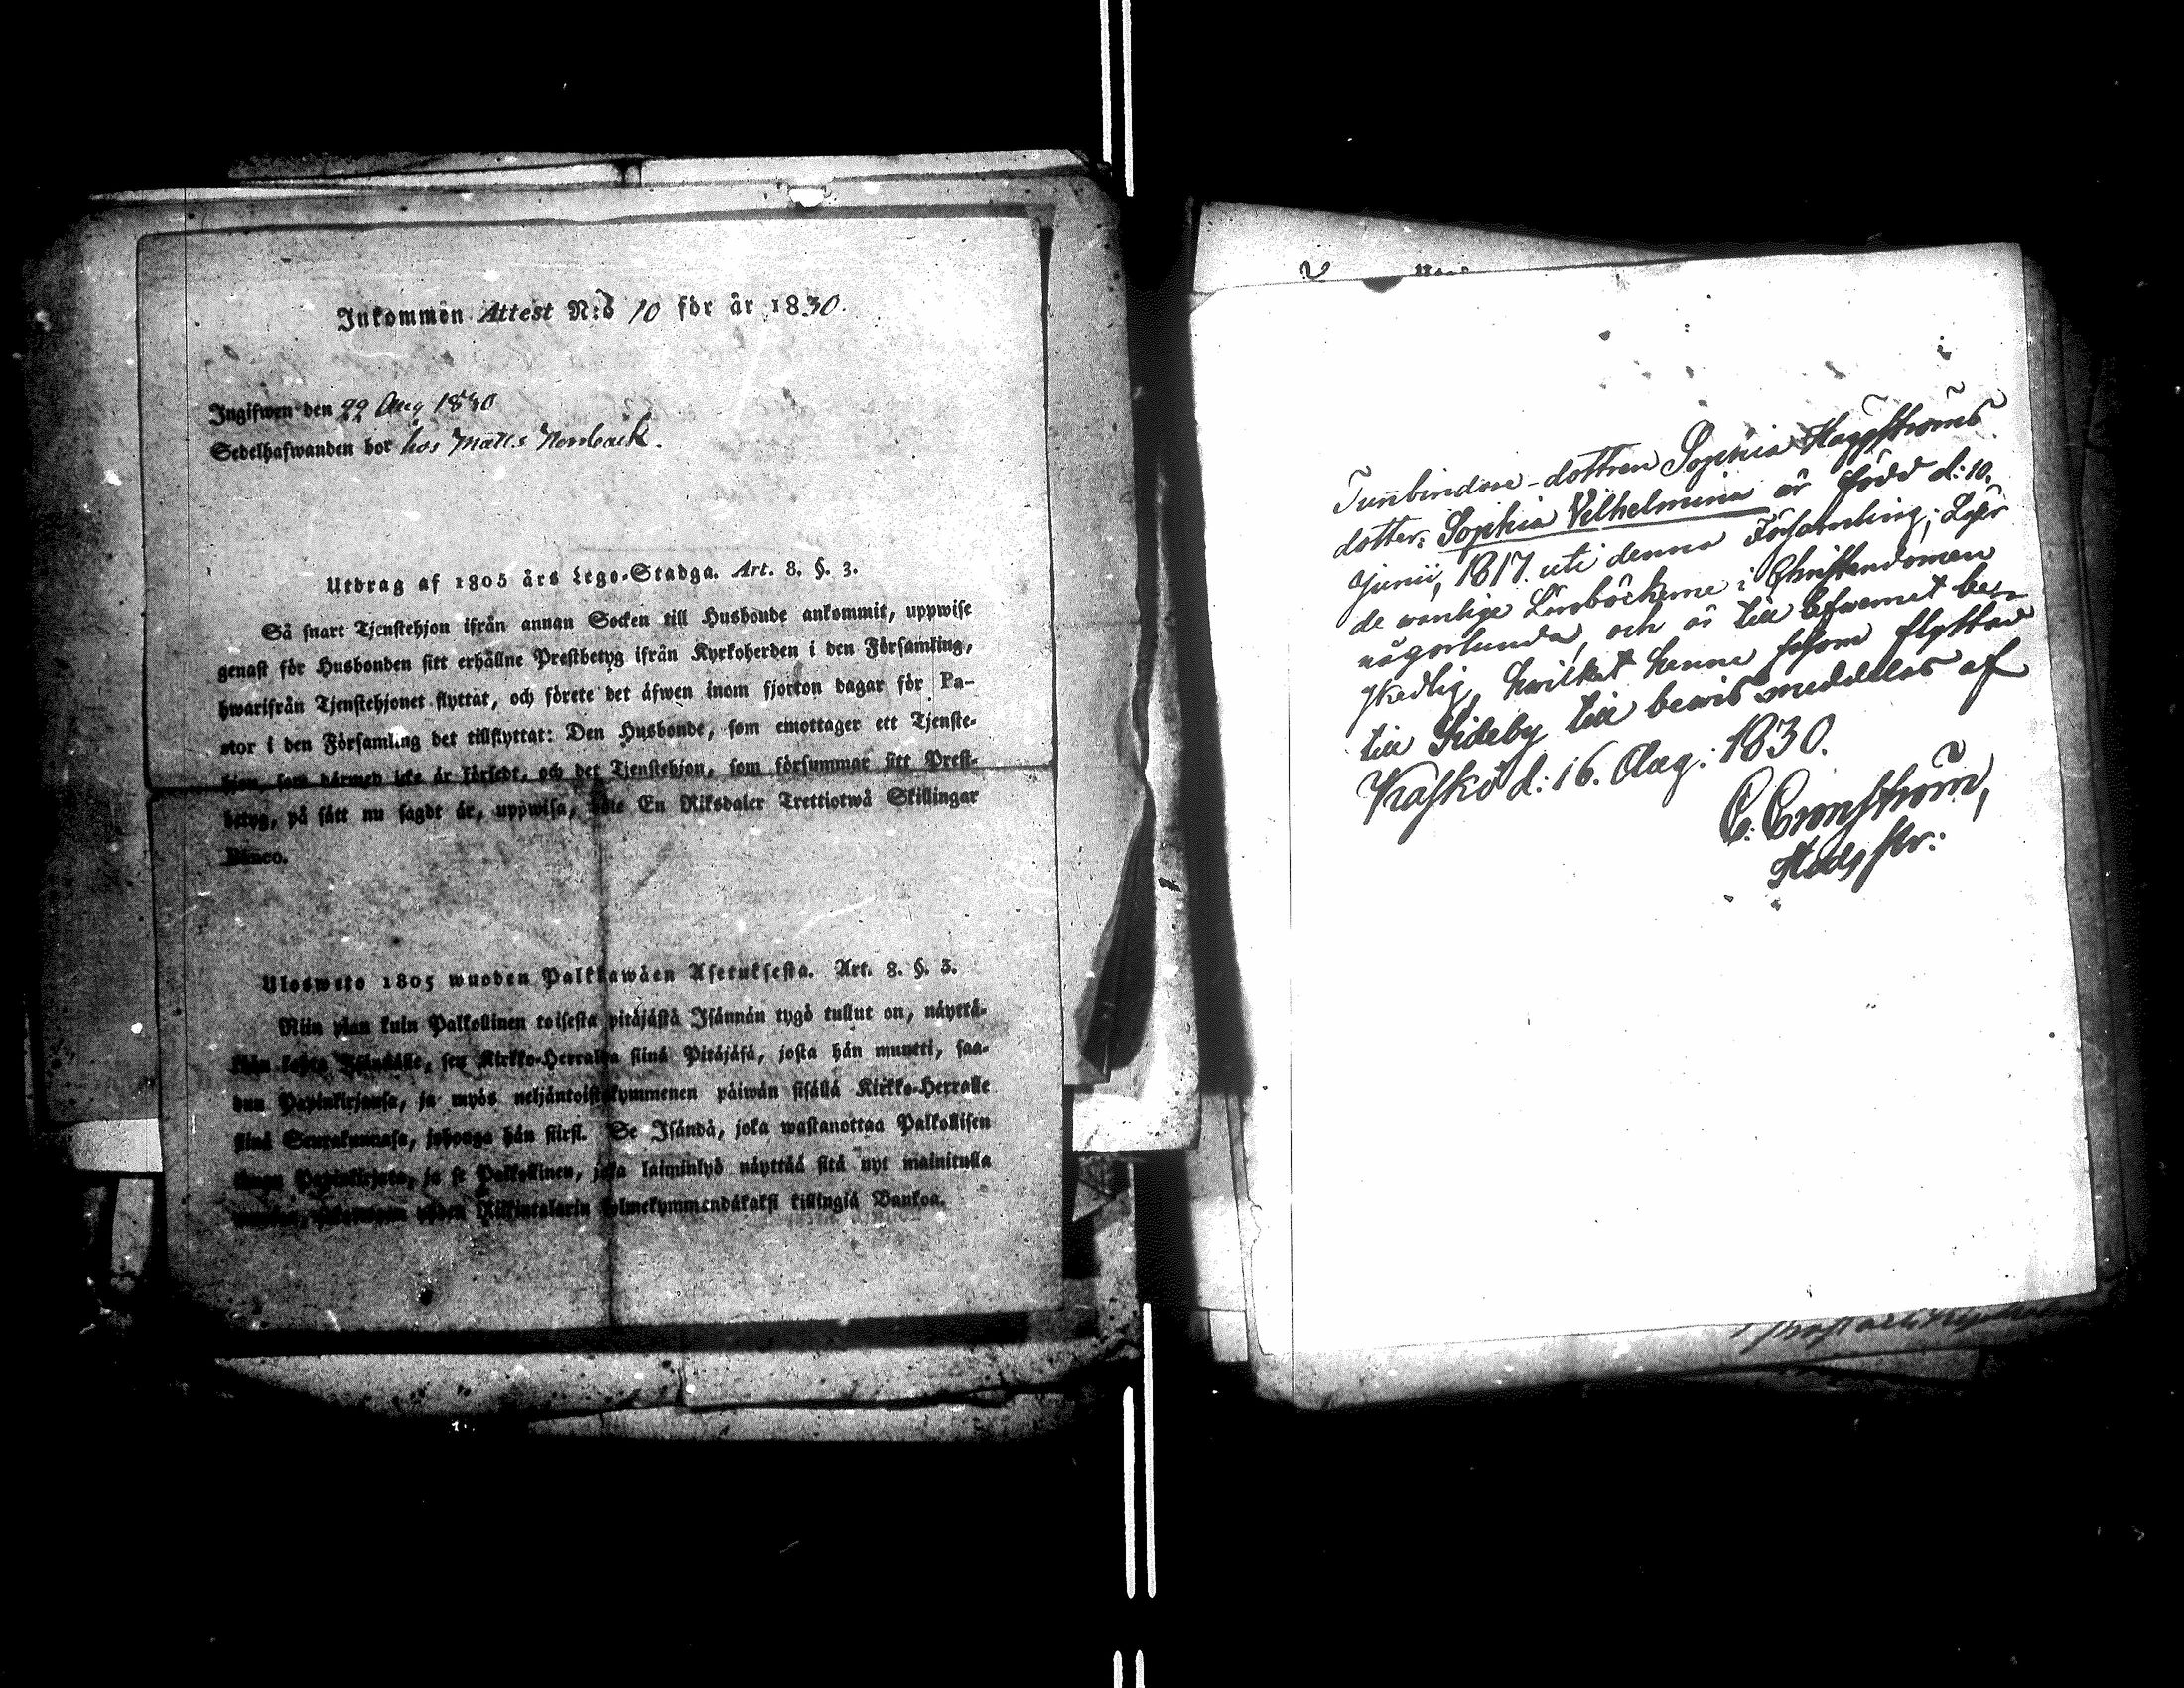 Inkommen Attest N:o 10 för år 1830.
Ingifwen den 22 Aug 1830
Sedelhafwanden bor hos Matts Norrback.
Utdrag af 1805 års Lego-Stadga. Art. 8. §. 3.
Så snart Tjenstehjon ifrån annan Socken till Husbonde ankommit, uppwise
genast för Husbonden sitt erhållne Prestbetyg ifrån Kyrkoherden i den Församling,
hwarifrån Tjenstehjonet flyttat, och förete det äfwen inom fjorton dagar för Pa-
stor i den Församling det tillflyttat: Den Husbonde, som emottager ett Tjenste-
hjon, som härmed icke är försedt, och det Tjenstehjon, som försummar sitt Prest-
betyg, på sätt nu sagdt är, uppwisa, böte En Riksdaler Trettiotwå Skillingar
Banco.
Ulosweto 1805 wuoden Palkkawäen Asetuksesta. Art. 8. §. 3.
Niin pian kuin Palkollinen toisesta pitäjästä Isännän tygö tullut on, näyttä-
kään Isändälle, sen Kirkko-Herralda siinä Pitäjäsä, josta hän muutti, saa-
dun Papinkirjansa, ja myös neljäntoistakymmenen päiwän sisällä Kirkko-Herralle
siinä Seurakunnasa, johonga hän siirsi. Se Isändä, joka wastanottaa Palkollisen
ilman Papinkirjata, ja se Palkollinen, joka laiminlyö näyttää sitä nyt mainitulla
Riikintalarin kolmekymmendäkaksi killingiä Bankoa.
Tunnbindare-dottren Sophia Häggströms
dotter: Sophia Vilhelmina är född d: 10.
Junii, 1817. uti denna Församling; Läser
de wanlige Läroböckerne i Christendomen
någorlunda, och är till Lefwernet be-
skedlig, hwilket henne såsom flyttad
till Sideby till bewis meddelas af
Kaskö d: 16. Aug: 1830.
C: Cronström,